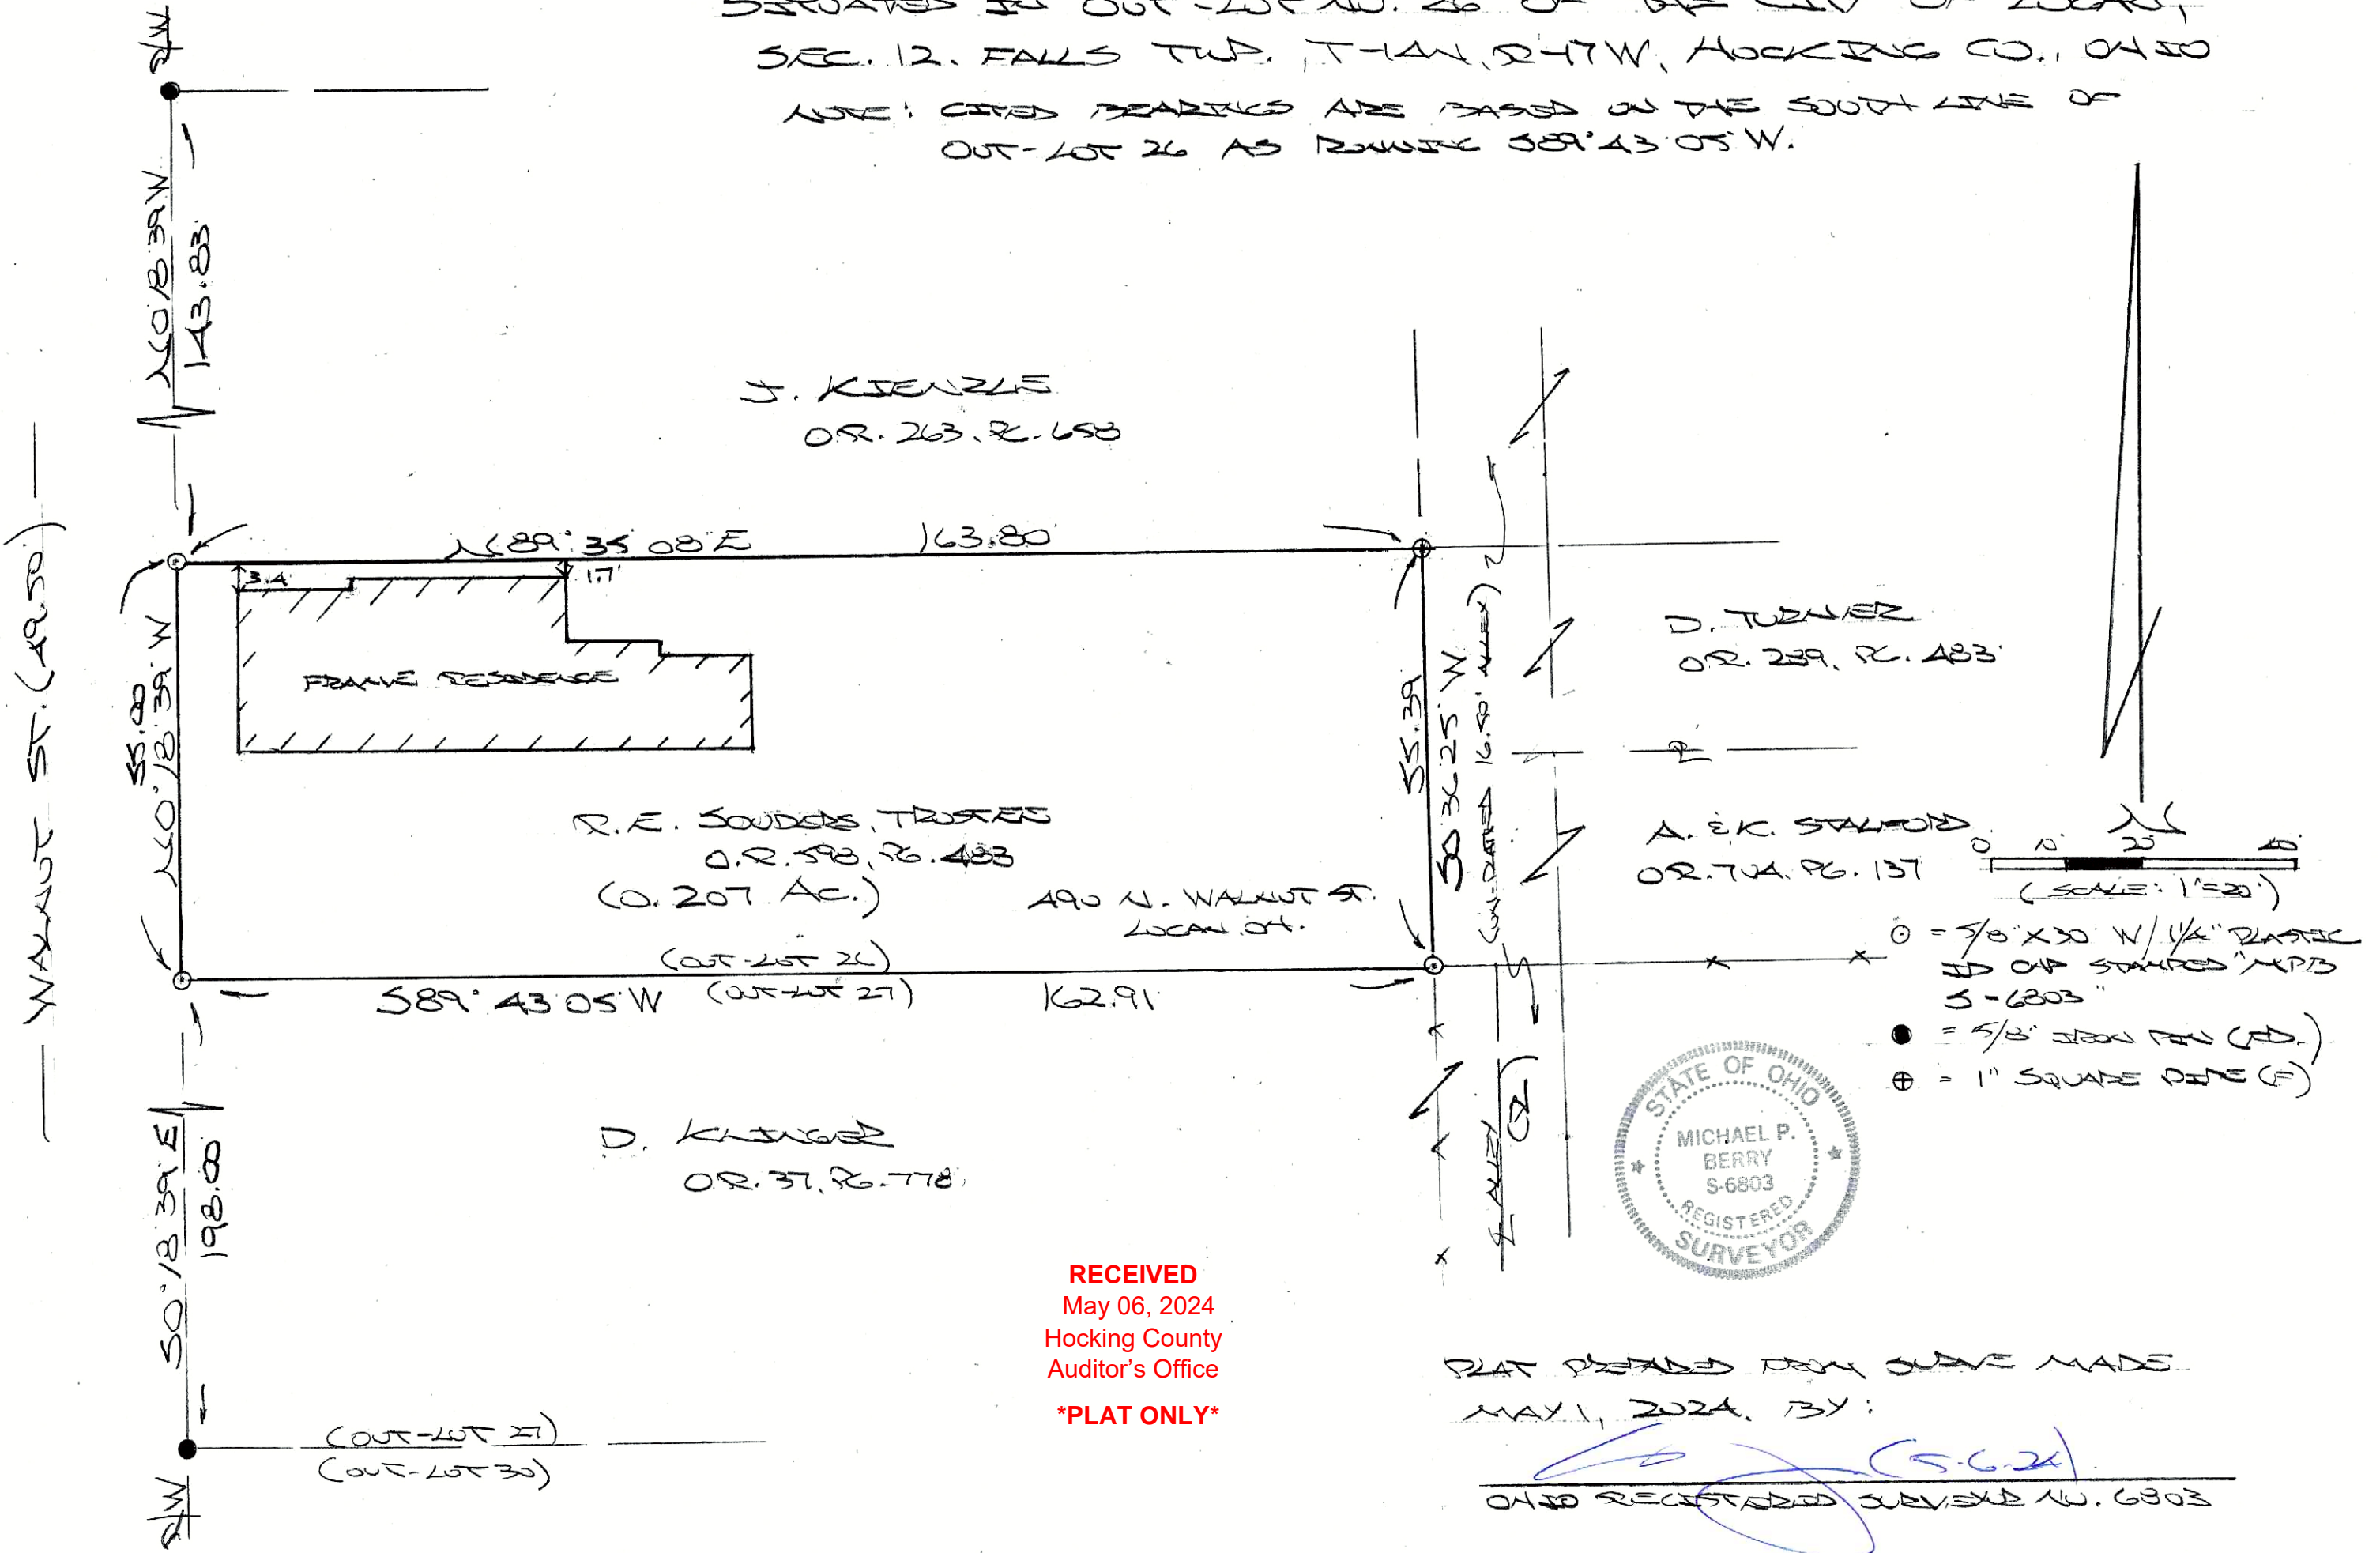 SITUATED IN OUT-LOT NO. 26 OF THE CITY OF LOGAN,
SEC. 12. FALLS TWP., T-14N, R-17W, HOCKING CO., OHIO
NOTE: CITED BEARINGS ARE BASED ON THE SOUTH LINE OF
OUT-LOT 26 AS RUNNING S89°43'05"W.
R/W
N0°18'39"W
143.83'
J. KIENZLE
O.R. 263, PG. 658
WALNUT ST. (49.50')
N89°35'08"E 163.80'
3.4'
1.7'
FRAME RESIDENCE
55.00'
N0°18'39"W
55.39'
S0°36'25"W
(UN-PLATTED 16.50' ALLEY)
D. TURNER
O.R. 239, PG. 483
PL
A. & K. STALFORD
O.R. 704, PG. 137
R.E. SOUDERS, TRUSTEE
O.R. 598, PG. 483
(0.207 AC.)
490 N. WALNUT ST.
LOGAN OH.
(OUT-LOT 26)
S89°43'05"W (OUT-LOT 27) 162.91'
N
0 10' 20' 40'
(SCALE: 1"=20')
⊙ = 5/8"X30" W/ 1 1/4" PLASTIC
ID CAP STAMPED "MPB
S-6803"
● = 5/8" IRON PIN (FD.)
⊕ = 1" SQUARE PIPE (F)
S0°18'39"E
198.00'
D. KLINGER
O.R. 37, PG. 778
ALLEY
STATE OF OHIO
MICHAEL P.
BERRY
S-6803
REGISTERED
SURVEYOR
RECEIVED
May 06, 2024
Hocking County
Auditor's Office
*PLAT ONLY*
PLAT PREPARED FROM SURVE MADE
MAY 1, 2024, BY:
(5-6-24)
OHIO REGISTERED SURVEYOR NO. 6803
(OUT-LOT 27)
(OUT-LOT 30)
R/W